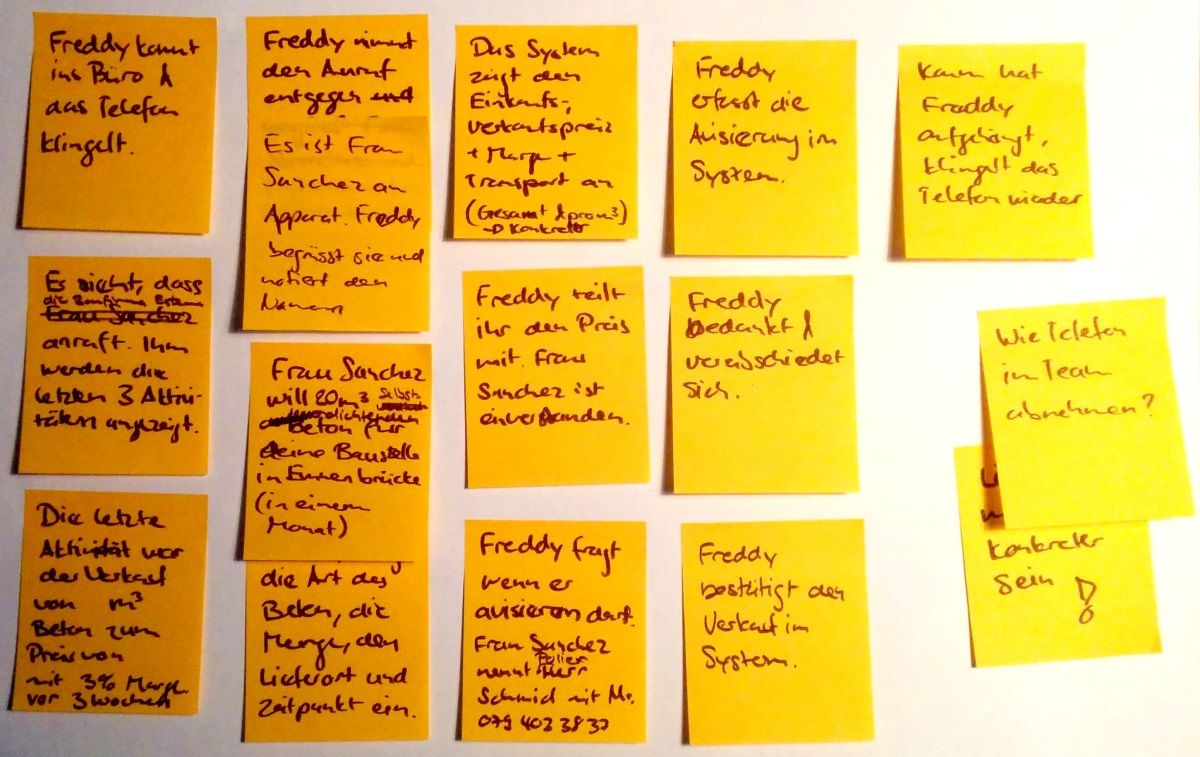 Freddy kommt
ins Büro &
das Telefon
klingelt.
Es sieht, dass
die Baufirma
Frau Sanchez
anruft. Ihm
werden die
letzten 3 Aktivi-
täten angezeigt.
Die letzte
Aktivität war
der Verkauf
von m³
Beton zum
Preis von
mit 3% Marge
vor 3 Wochen
Freddy nimmt
den Anruf
entgegen und
Es ist Frau
Sanchez am
Apparat. Freddy
begrüsst sie und
notiert den
Namen
Frau Sanchez
will 20m³ Selbst-
verdichtenden
Beton für
eine Baustelle
in Emmenbrücke
(in einem
Monat)
die Art des
Beton, die
Menge, den
Lieferort und
Zeitpunkt ein.
Das System
zeigt den
Einkaufs-,
Verkaufspreis
+ Marge +
Transport an
(Gesamt & pro m³)
→ Konkreter
Freddy teilt
ihr den Preis
mit. Frau
Sanchez ist
einverstanden.
Freddy fragt
wenn er
avisieren darf.
Frau Sanchez
nennt Polier Herr
Schmid mit Nr.
079 402 38 37
Freddy
erfasst die
Avisierung im
System.
Freddy
bedankt &
verabschiedet
sich.
Freddy
bestätigt den
Verkauf im
System.
Kaum hat
Freddy
aufgehängt,
klingelt das
Telefon wieder
Wie Telefon
im Team
abnehmen?
konkreter
sein !